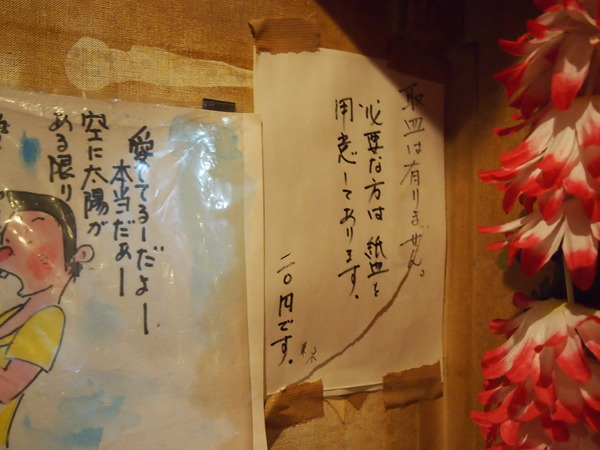 取皿は有りません。
必要な方は紙皿を
用意してあります。
二〇円です。
愛してるーだよー
本当だぁー
空に太陽が
ある限り